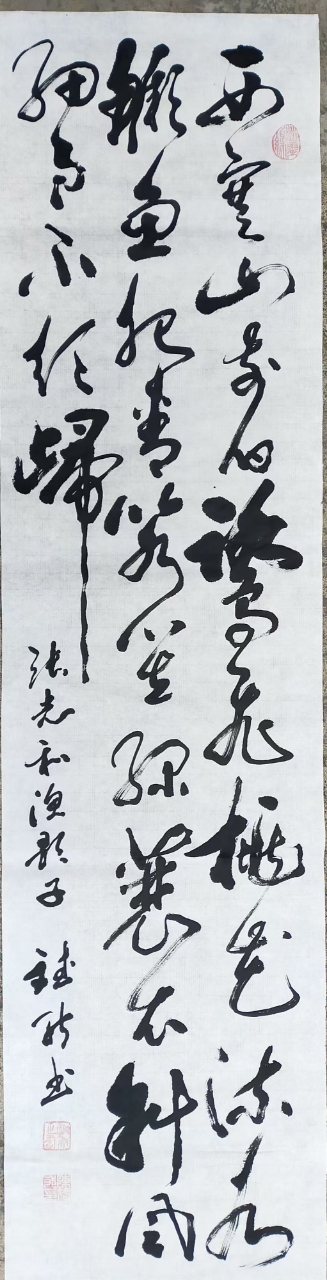 西塞山前白鷺飛桃花流水
鱖魚肥青箬笠綠蓑衣斜風
細雨不須歸
張志和漁歌子 書